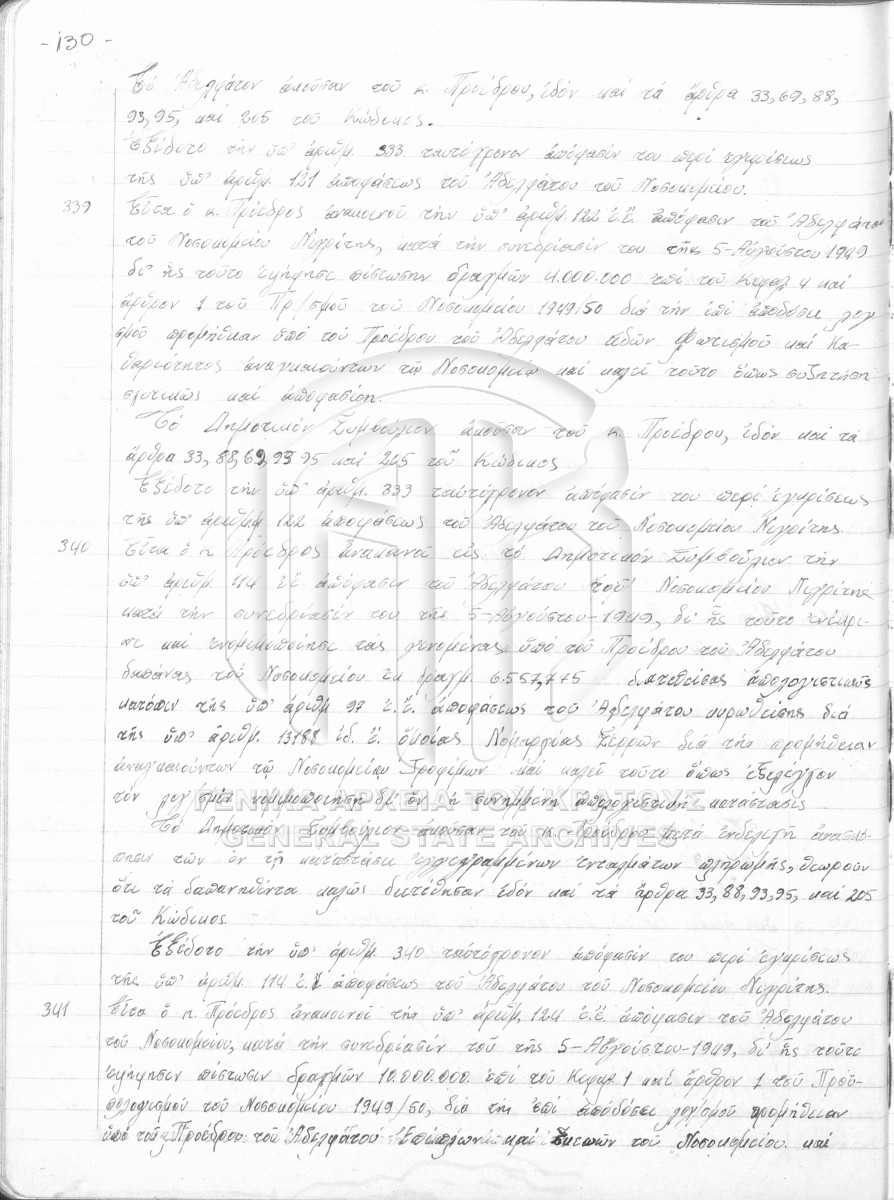 -130-
Τό Ἀδελφάτον ἀκοῦσαν τοῦ κ. Προέδρου, ἰδόν καί τά ἄρθρα 33, 69, 88,
93, 95, καί 205 τοῦ Κώδικος.
Ἐξέδοτο τήν ὑπ' ἀριθμ. 333 ταυτόχρονον ἀπόφασίν του περί ἐγκρίσεως
τῆς ὑπ' ἀριθμ. 121 ἀποφάσεως τοῦ Ἀδελφάτου τοῦ Νοσοκομείου.
339 Εἶτα ὁ κ. Πρόεδρος ἀνακοινοῖ τήν ὑπ' ἀριθμ. 122 ἐ.ἔ. ἀπόφασιν τοῦ Ἀδελφάτου
τοῦ Νοσοκομείου Νιγρίτης, κατά τήν συνεδρίασίν του τῆς 5-Αὐγούστου 1949
δι' ἧς τοῦτο ἐψήφισε πίστωσιν δραχμῶν 4.000.000 ἐπί τοῦ Κεφαλ 4 καί
ἄρθρον 1 τοῦ Πρ/σμοῦ τοῦ Νοσοκομείου 1949/50 διά τήν ἐπί ἀποδόσει λογ
σμοῦ προμήθειαν ὑπό τοῦ Προέδρου τοῦ Ἀδελφάτου εἰδῶν Φωτισμοῦ καί Κα-
θαριότητος ἀναγκαιούντων τῷ Νοσοκομείῳ καί καλεῖ τοῦτο ὅπως συζητήση
σχετικῶς καί ἀποφασίση.
Τό Δημοτικόν Συμβούλιον ἀκοῦσαν τοῦ κ. Προέδρου, ἰδόν καί τά
ἄρθρα 33, 88, 69, 93 95 καί 205 τοῦ Κώδικος
Ἐξέδοτο τήν ὑπ' ἀριθμ. 333 ταυτόχρονον ἀπόφασίν του περί ἐγκρίσεως
τῆς ὑπ' ἀριθμ. 122 ἀποφάσεως τοῦ Ἀδελφάτου τοῦ Νοσοκομείου Νιγρίτης.
340 Εἶτα ὁ κ. Πρόεδρος ἀνακοινοῖ εἰς τό Δημοτικόν Συμβούλιον τήν
ὑπ' ἀριθμ. 114 ἐ.ἔ. ἀπόφασιν τοῦ Ἀδελφάτου τοῦ Νοσοκομείου Νιγρίτης
κατά τήν συνεδρίασίν του τῆς 5-Αὐγούστου-1949, δι' ἧς τοῦτο ἐνέκρι-
νε καί ἐνομιμοποίησε τάς γενομένας ὑπό τοῦ Προέδρου τοῦ Ἀδελφάτου
δαπάνας τοῦ Νοσοκομείου ἐκ δραχμ. 6.557,775 διατεθείσας ἀπολογιστικῶς
κατόπιν τῆς ὑπ' ἀριθμ 97 ἐ.ἔ. ἀποφάσεως τοῦ Ἀδελφάτου κυρωθείσης διά
τῆς ὑπ' ἀριθμ. 13188 ἐ.ἔ. ὁμοίας Νομαρχίας Σερρῶν διά τήν προμήθειαν
ἀναγκαιούντων τῷ Νοσοκομείου Τροφίμων καί καλεῖ τοῦτο ὅπως ἐξελέγξον
τόν λογ/σμόν νομιμοποιήση δι' ὅν ἡ συνημμένη ἀπολογιστική κατάστασις
Τό Δημοτικόν Συμβούλιον ἀκοῦσαν τοῦ κ. Προέδρου μετά ἐνδελεχῆ ἀνασκό-
πησιν τῶν ἐν τῇ καταστάσει ἐγγεγραμμένων ἐνταλμάτων πληρωμῆς, θεωροῦν
ὅτι τά δαπανηθέντα καλῶς διετέθησαν ἰδόν καί τά ἄρθρα 33, 88, 93, 95, καί 205
τοῦ Κώδικος.
Ἐξέδοτο τήν ὑπ' ἀριθμ. 340 ταυτόχρονον ἀπόφασίν του περί ἐγκρίσεως
τῆς ὑπ' ἀριθμ. 114 ἐ.ἔ. ἀποφάσεως τοῦ Ἀδελφάτου τοῦ Νοσοκομείου Νιγρίτης.
341 Εἶτα ὁ κ. Πρόεδρος ἀνακοινοῖ τήν ὑπ' ἀριθμ. 124 ἐ.ἔ. ἀπόφασιν τοῦ Ἀδελφάτου
τοῦ Νοσοκομείου, κατά τήν συνεδρίασίν τοῦ τῆς 5-Αὐγούστου-1949, δι' ἧς τοῦτο
ἐψήφησεν πίστωσιν δραχμῶν 10.000.000 ἐπί τοῦ Κεφαλ 1 καί ἄρθρον 1 τοῦ Προϋ-
πολογισμοῦ τοῦ Νοσοκομείου 1949/50, διά τήν ἐπί ἀποδόσει λογ/σμοῦ προμήθειαν
ὑπό τοῦ Προέδρου τοῦ Ἀδελφάτου Ἐπίπλων καί Σκευῶν τοῦ Νοσοκομείου καί
ΓΕΝΙΚΑ ΑΡΧΕΙΑ ΤΟΥ ΚΡΑΤΟΥΣ
GENERAL STATE ARCHIVES